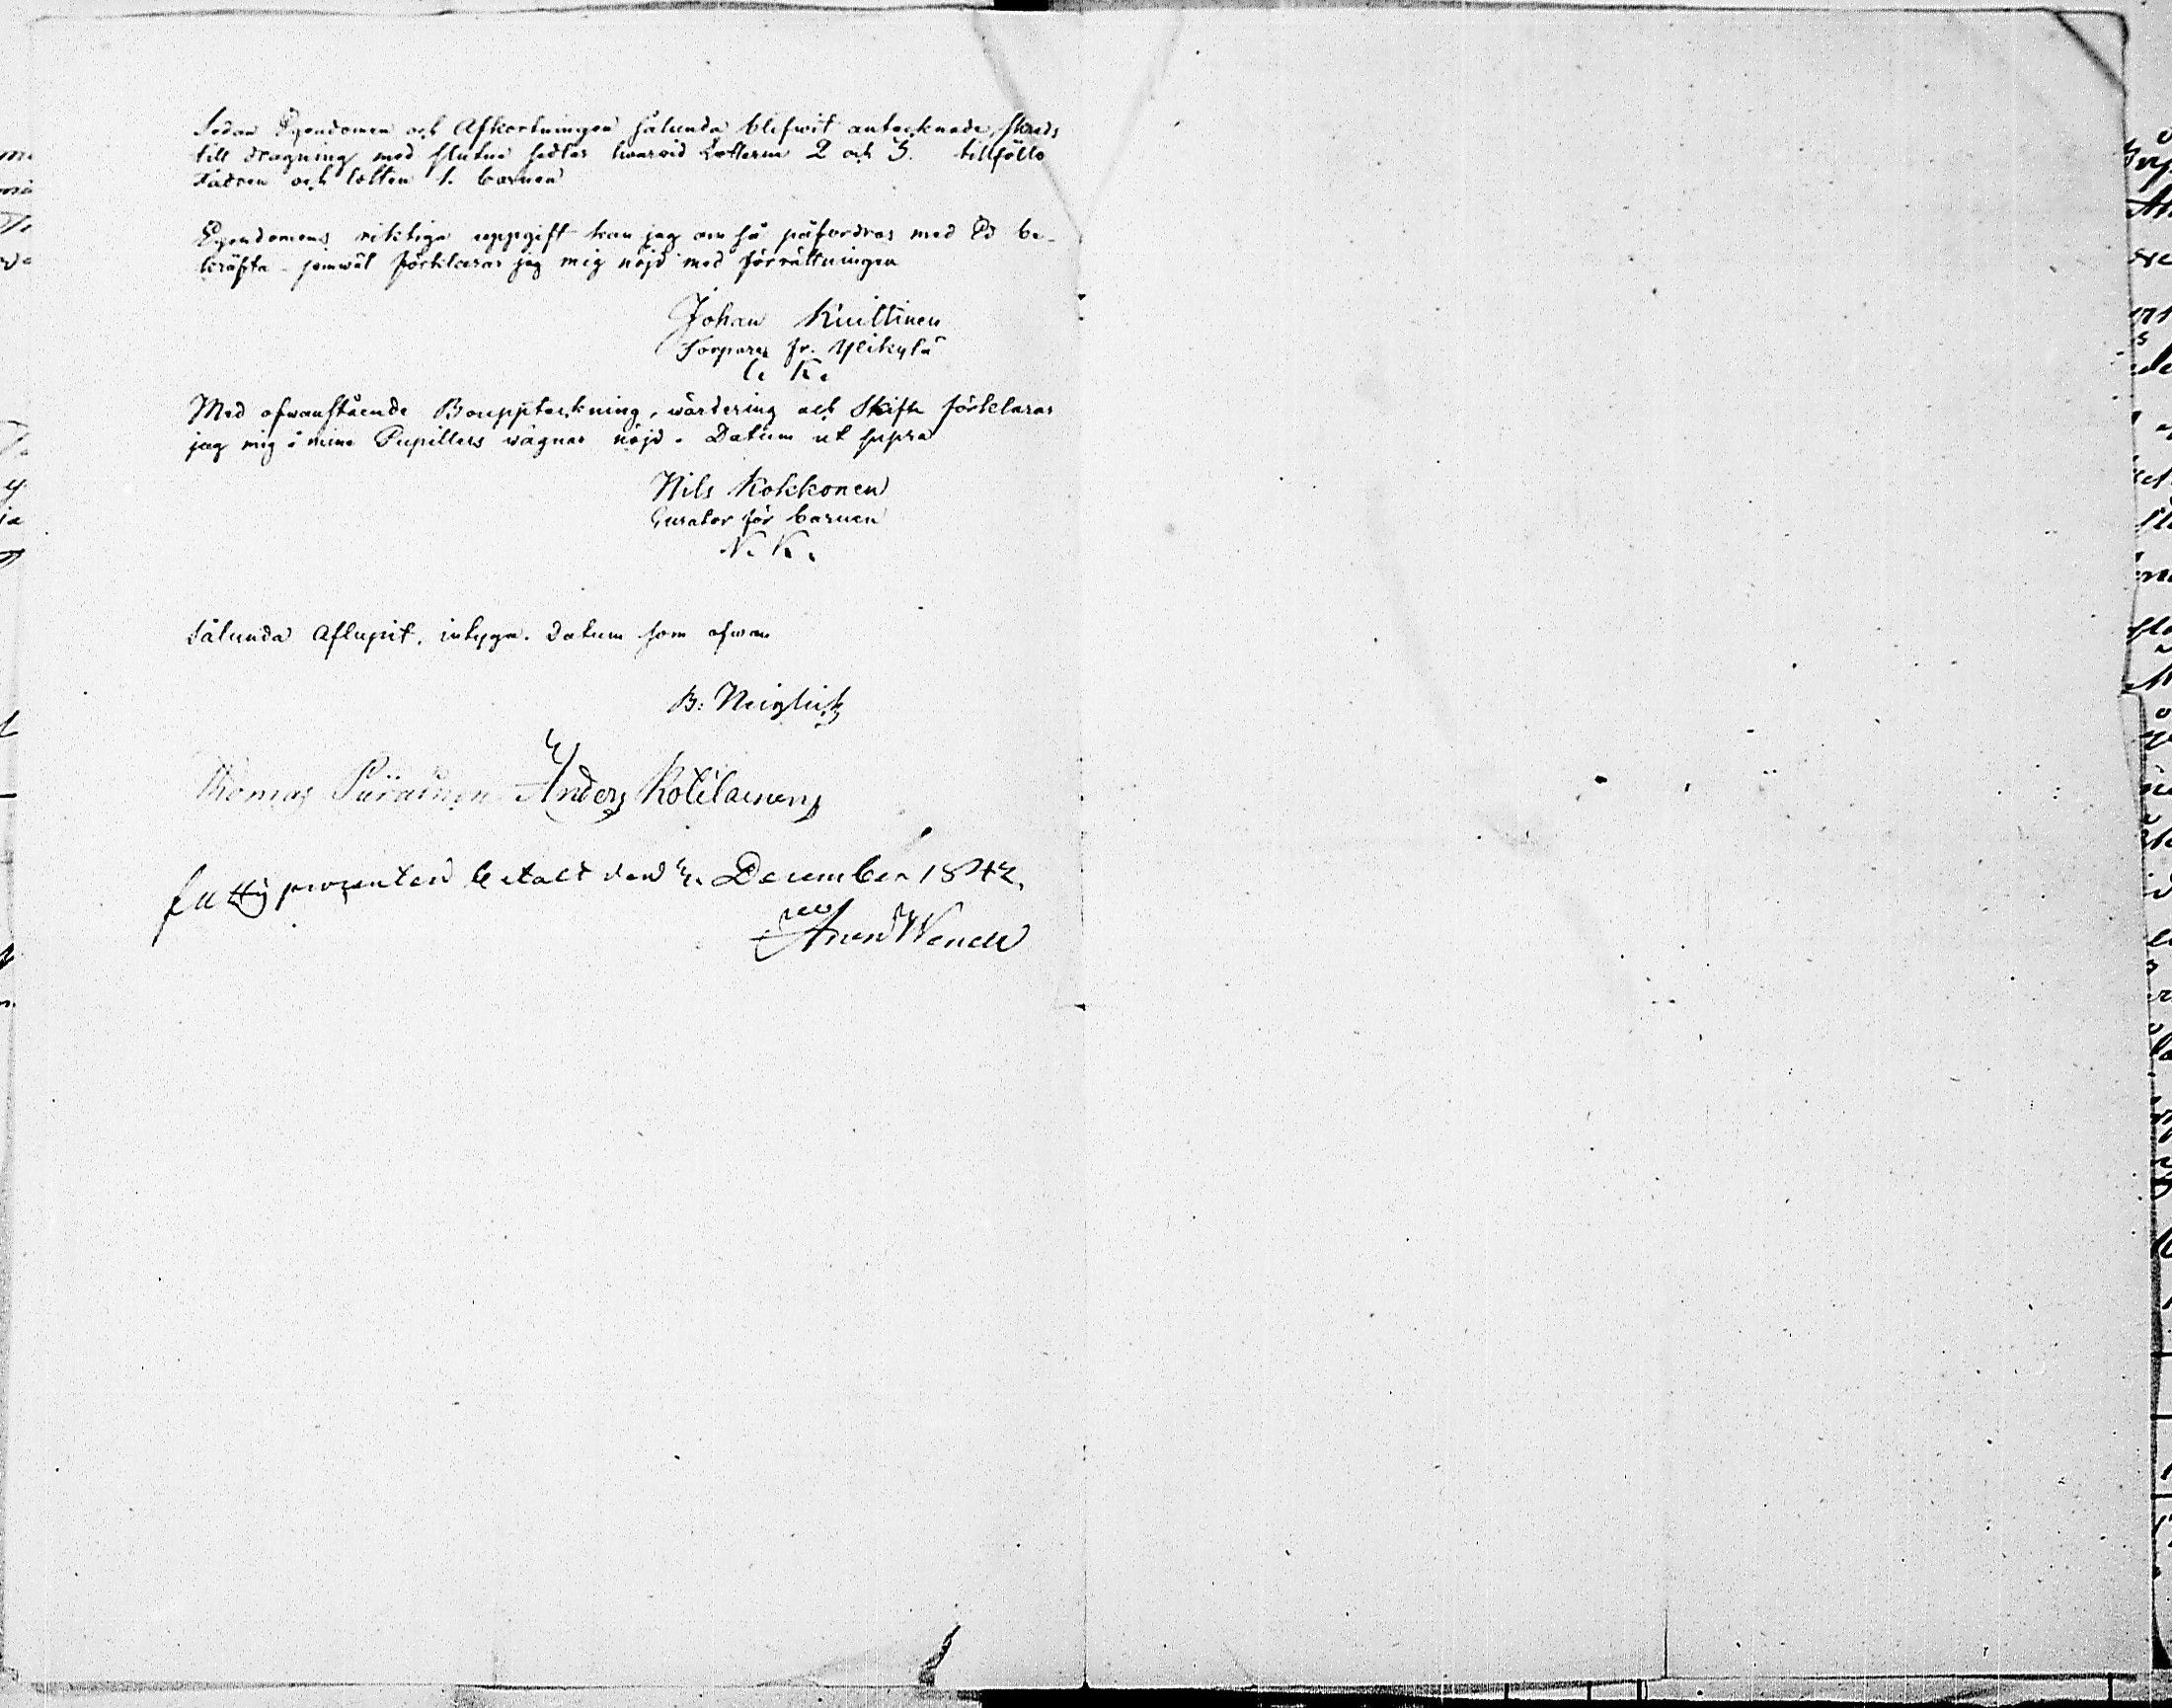 Sedan Egendomen och Afkortningen sålunda blifwit antecknade, skreds
till dragning med slutne sedlar hwarvid Lotterne 2 och 3. tillföllo
Fadren och lotten 1. barnen
Egendomens riktiga uppgift kan jag om så påfordras med Ed be-
kräfta - jemwäl förklarar jag mig nöjd med förrättningen
Johan Kuittinen
Torpare fr. Ylikylä
I. K.
Med ofwanstående Bouppteckning, wärdering och Skifte förklarar
jag mig å mine Pupillers wägnar nöjd. Datum ut supra
Nils Kokkonen
Curator för barnen
N. K.
Sålunda aflupit, intyga. Datum som ofwan
B: Neiglick
Thomas Anders Kotilainen
fattig procenten betalt den 2. December 1842.